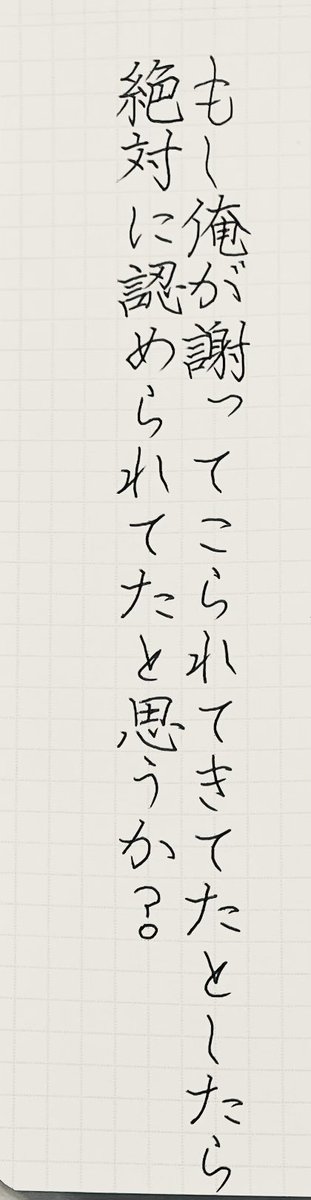 もし俺が謝ってこられてきてたとしたら
絶対に認められてたと思うか？